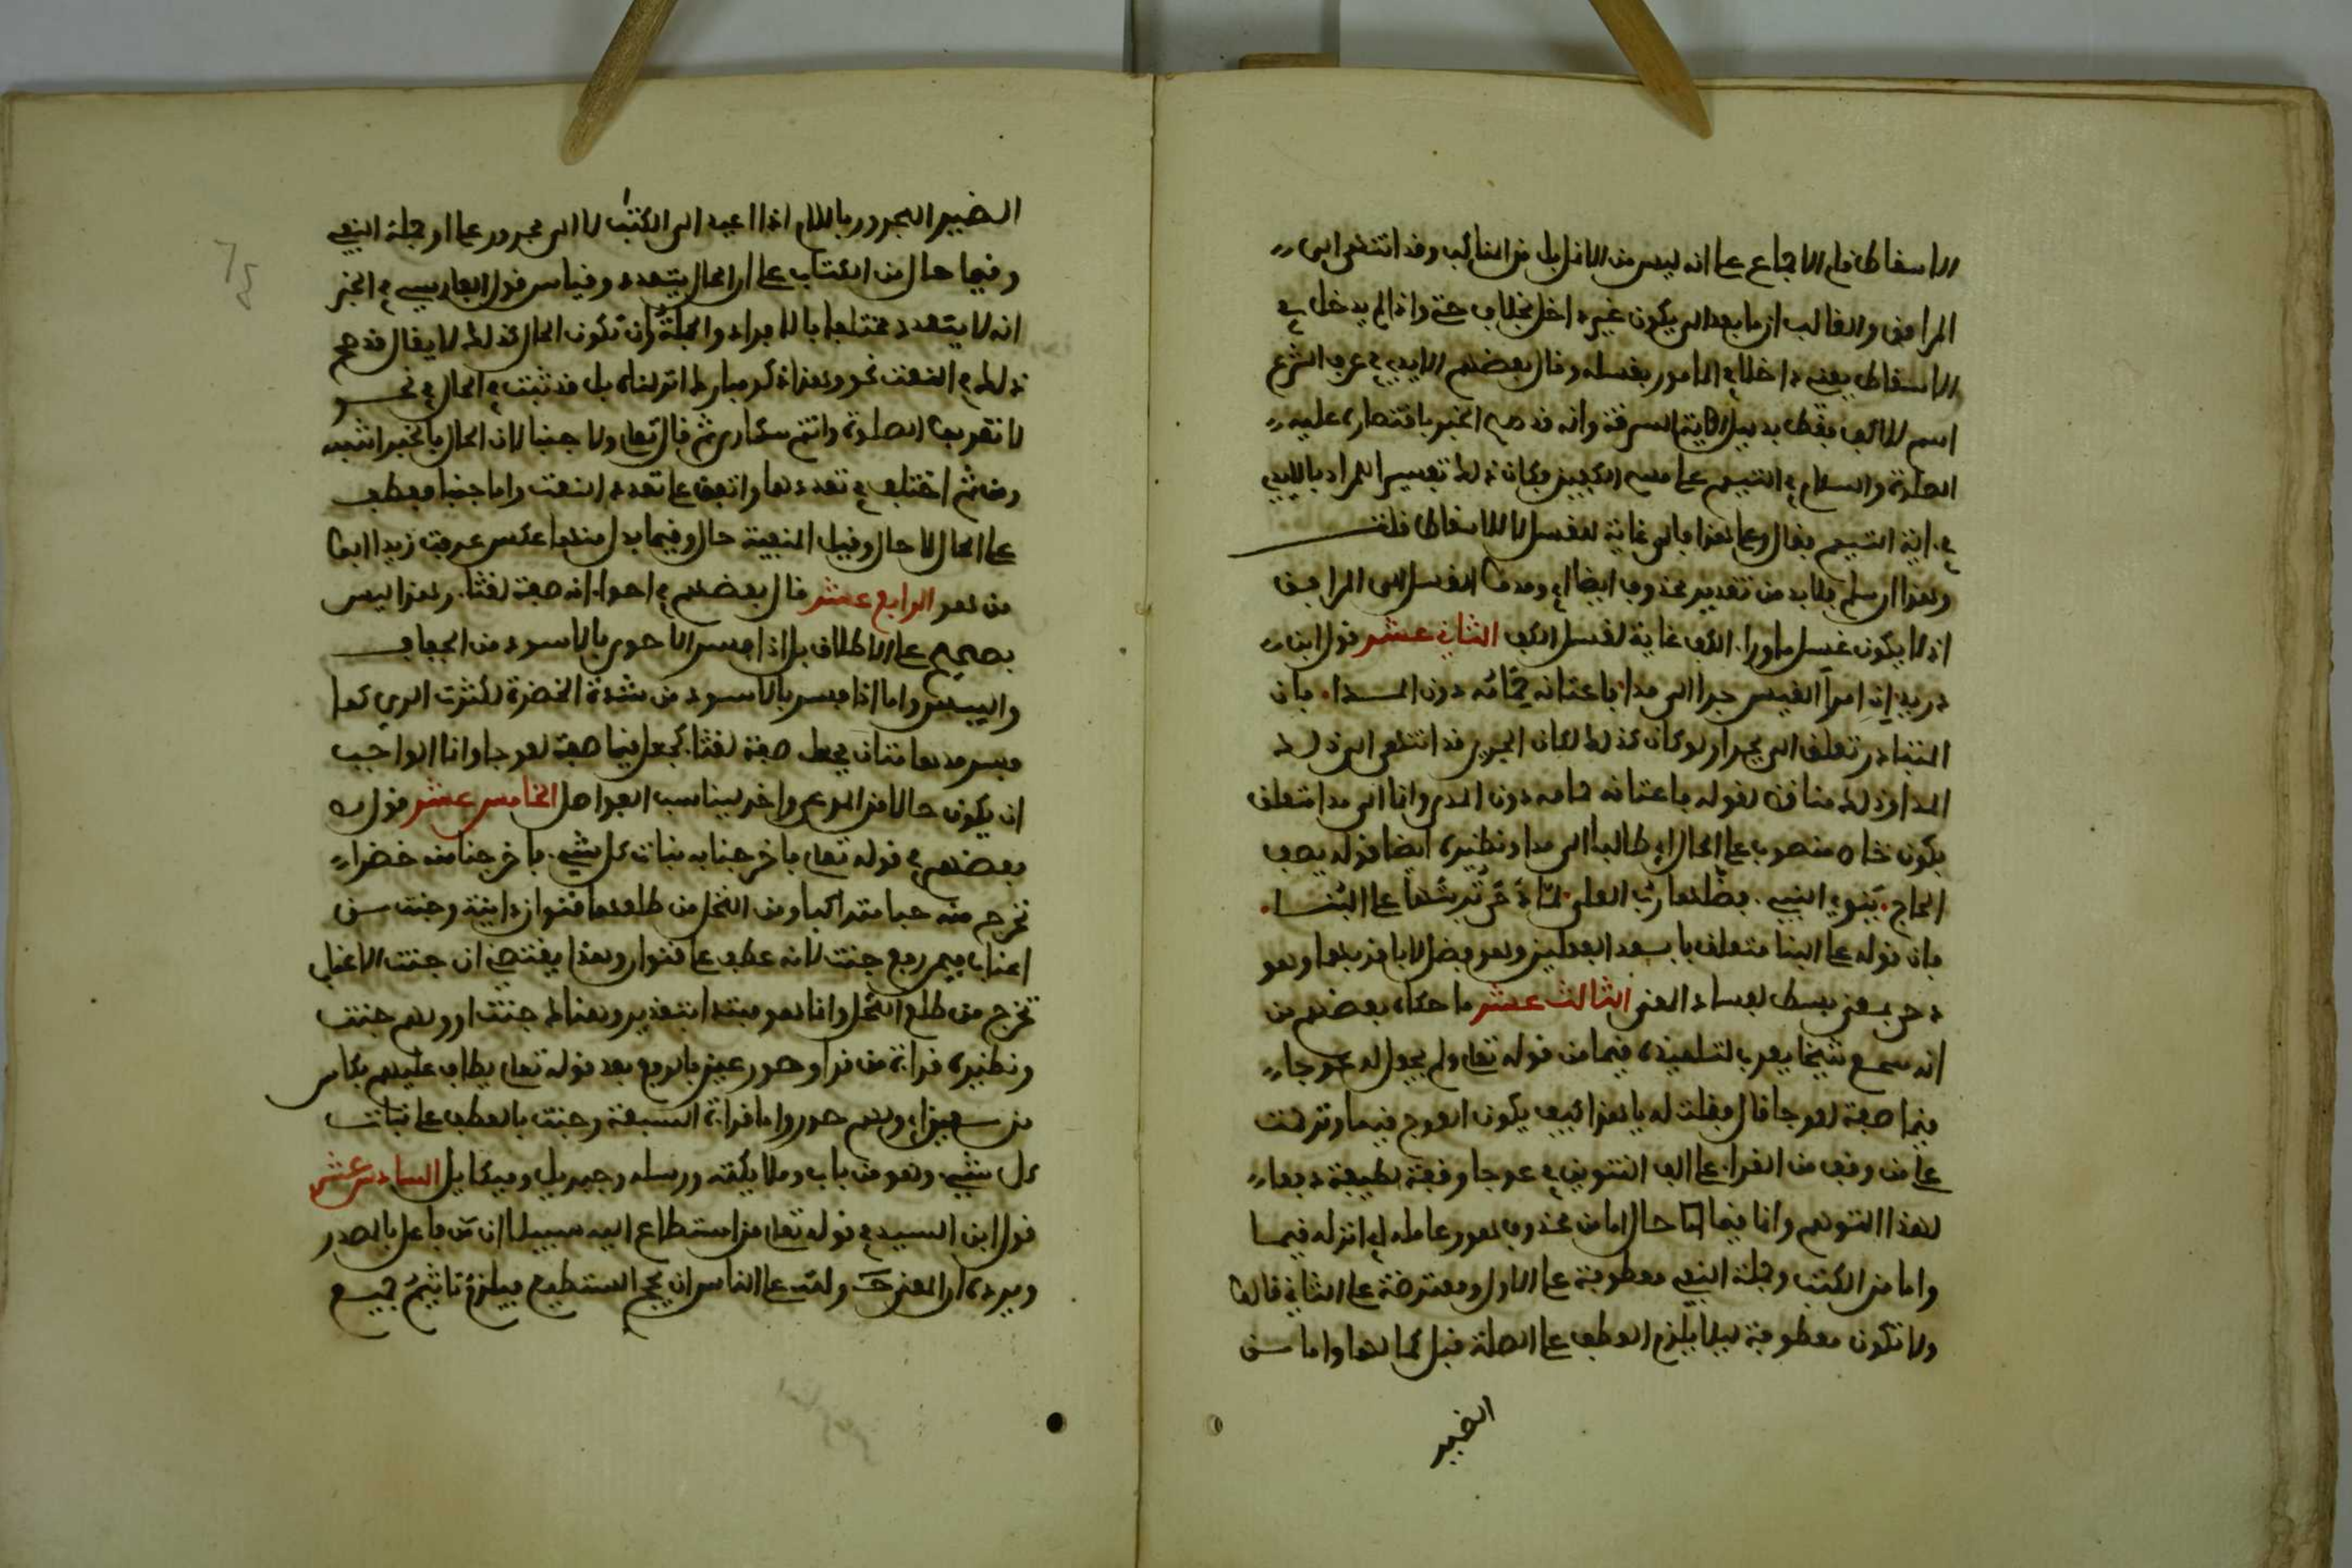 الاسقاط قام الاجماع على انه ليس من الانامل بل من المناكب وقد انتهى الى
المرافق والغالب ان ما بعد الى يكون غير داخل بخلاف حتى واذا لم يدخل في
الاسقاط بقي داخلا في المامور بغسله وقال بعضهم الايدي في عرف الشرع
اسم للاكف فقط بدليل اية السرقة وانه قد صح الخبر باقتصاره عليه
الصلوة والسلام في التيمم على مسح الكفين وكان ذلك تفسيرا للمراد بالايدي
في اية التيمم فقال وعلى هذا فالى غاية للغسل لا للاسقاط قلت
وهذا ان سلم فلا بد من تقدير محذوف ايضا اي ومدوا الغسل الى المرافق
اذ لا يكون غسل ما وراء الكف غاية لغسل الكف الثاني عشر قول ابن
دريد ان امرأ القيس جرا الى مدا فاعتاقه حمامه دون المدا فان
المتبادر تعلق الى بجرا ولو كان كذلك لكان الجري قد انتهى الى ذلك
المدا وذلك مناقض لقوله فاعتاقه حمامه دون المدى وانما الى مدا متعلق
بكون خاص منصوب على الحال اي طالبا الى مدا ونظيره ايضا قوله يصف
الحاج ينوي التي فضلها رب العلى لما دحى تربتها على البنا
فان قوله على البنا متعلق بابعد الفعلين وهو فضل لا باقربهما وهو
دحى بمعنى بسط لفساد المعنى الثالث عشر ما حكاه بعضهم من
انه سمع شيخا يعرب لتلميذه قيما من قوله تعلى ولم يجعل له عوجا
قيما صفة لعوجا قال فقلت له يا هذا كيف يكون العوج قيما وترحمت
على من وقف من القراء على الف التنوين في عوجا وقفة لطيفة دفعا
لهذا التوهم وانما قيما حال اما من محذوف هو وعامله اي انزله قيما
واما من الكتب وجملة النفي معطوفة على الاول ومعترضة على الثاني قالوا
ولا تكون معطوفة ليلا يلزم العطف على الصلة قبل كمالها واما من
الضمير
الضمير المجرور باللام اذا اعيد الى الكتب لا الى مجرور على او جملة النفي
وقيما حال من الكتاب على ان الحال يتعدد وقياس قول الفارسي في الخبر
انه لا يتعدد مختلفا بالافراد والجملة ان تكون الحال كذلك لا يقال قد صح
ذلك في النعت نحو وهذا ذكر مبارك انزلناه بل قد ثبت في الحال في نحو
لا تقربوا الصلوة وانتم سكارى ثم قال تعلى ولا جنبا لان الحال بالخبر اشبه
ومن ثم اختلف في تعددهما واتفق على تعدد النعت واما جنبا فعطف
على الحال لا حال وقيل المنفية حال وقيما بدل منها عكس عرفت زيدا ابوا
من هو الرابع عشر قال بعضهم في احوى انه صفة لغثاء وهذا ليس
بصحيح على الاطلاق بل اذا فسر الاحوى بالاسود من الجفاف
واليبس واما اذا فسر بالاسود من شدة الخضرة لكثرت الري كما
فسر مدهامتان فجعل صفة لغثاء كجعل قيما صفة لعوجا وانما الواجب
ان يكون حالا من المرعى واخر ليناسب الفواصل الخامس عشر قول
بعضهم في قوله تعلى فاخرجنا به نبات كل شيء فاخرجنا منه خضرا
نخرج منه حبا متراكبا ومن النخل من طلعها قنوان دانية وجنت من
اعناب فيمن رفع جنت لانه عطف على قنوان وهذا يقتضي ان جنت الاعناب
تخرج من طلع النخل وانما هو مبتدا بتقدير وهناك جنت او ولهم جنت
ونظيره قراءة من قرا وحور عين بالرفع بعد قوله تعلى يطاف عليهم بكاس
من معين اي ولهم حور واما قراءة السبعة وجنت بالعطف على نبات
كل شيء وهو من باب وملايكته ورسله وجبريل وميكايل السادس عشر
قول ابن السيد في قوله تعلى من استطاع اليه سبيلا ان من فاعل بالمصدر
ويرده ان المعنى ح ولله على الناس ان يحج المستطيع فيلزم تاثيم جميع